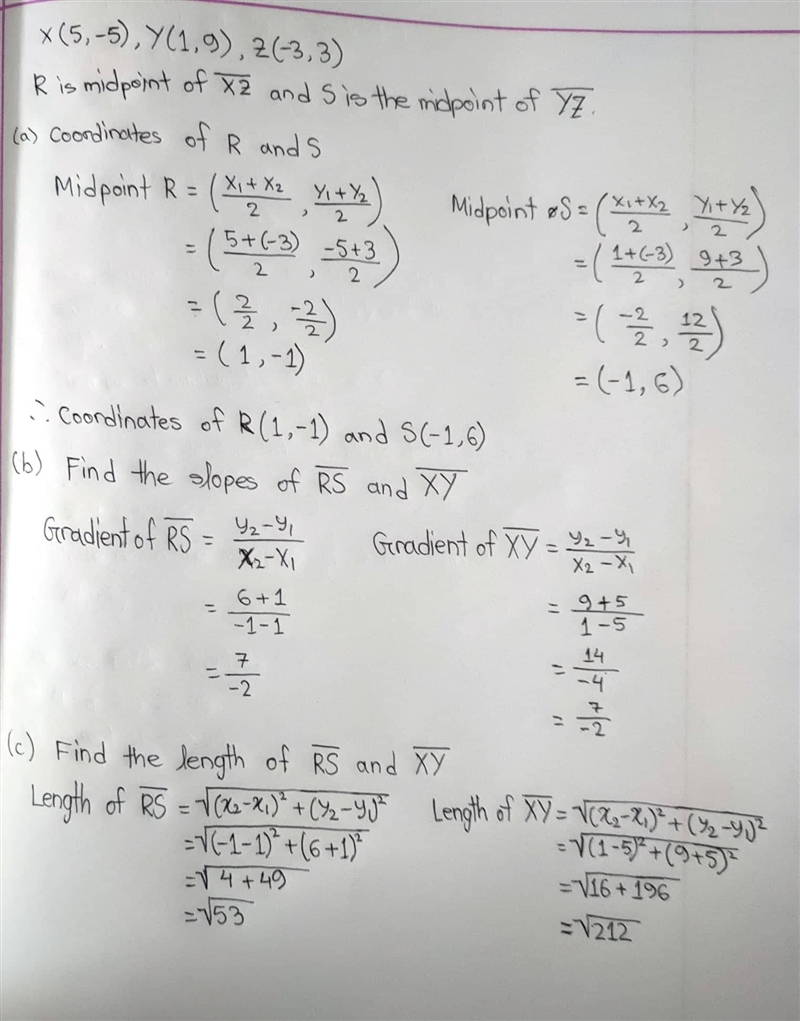 X(5,-5), Y(1,9), Z(-3,3)
R is midpoint of X̅Z̅ and S is the midpoint of Y̅Z̅.
(a) Coordinates of R and S
Midpoint R = ((x₁+x₂)/2, (y₁+y₂)/2)
= ((5+(-3))/2, (-5+3)/2)
= (2/2, -2/2)
= (1,-1)
Midpoint S = ((x₁+x₂)/2, (y₁+y₂)/2)
= ((1+(-3))/2, (9+3)/2)
= (-2/2, 12/2)
= (-1,6)
∴ Coordinates of R(1,-1) and S(-1,6)
(b) Find the slopes of R̅S̅ and X̅Y̅
Gradient of R̅S̅ = (y₂-y₁)/(x₂-x₁)
= (6+1)/(-1-1)
= 7/-2
Gradient of X̅Y̅ = (y₂-y₁)/(x₂-x₁)
= (9+5)/(1-5)
= 14/-4
= 7/-2
(c) Find the length of R̅S̅ and X̅Y̅
Length of R̅S̅ = √((x₂-x₁)²+(y₂-y₁)²)
= √((-1-1)²+(6+1)²)
= √(4+49)
= √53
Length of X̅Y̅ = √((x₂-x₁)²+(y₂-y₁)²)
= √((1-5)²+(9+5)²)
= √(16+196)
= √212